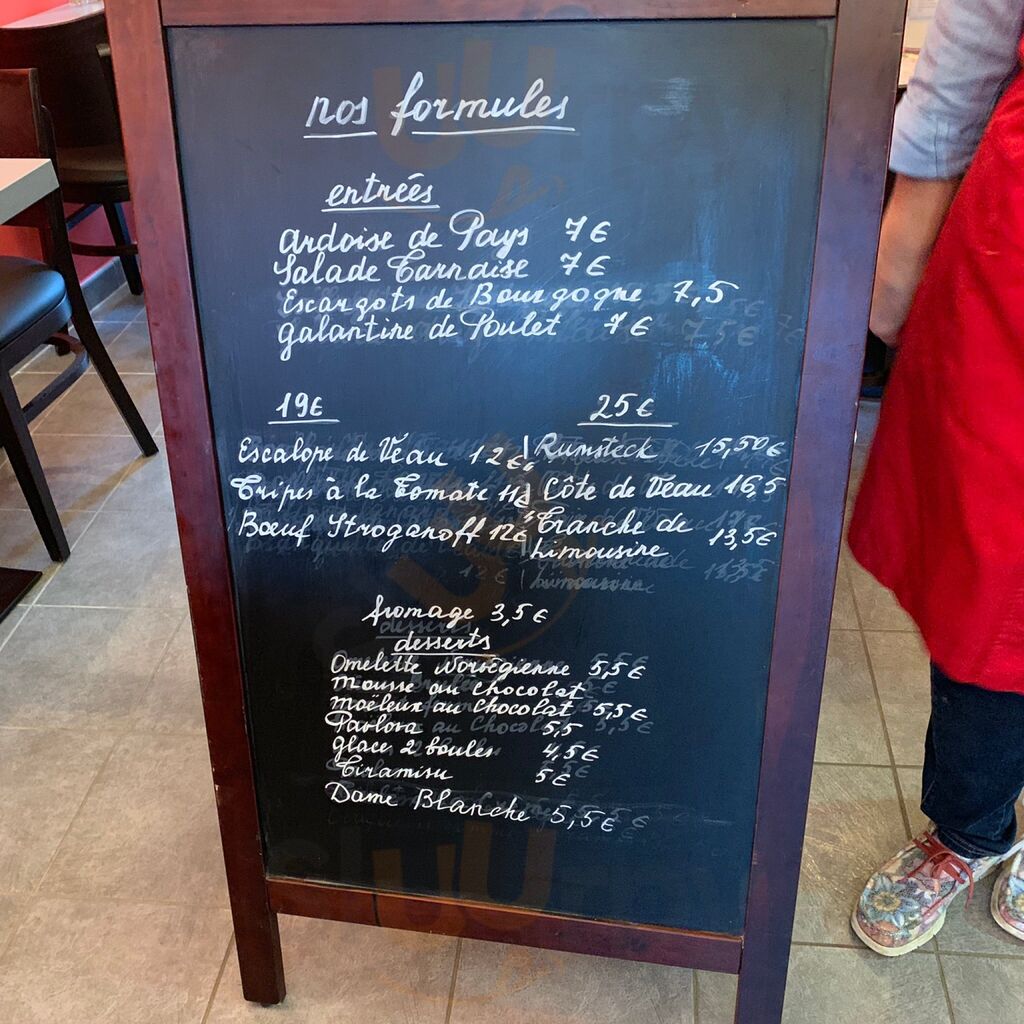 nos formules
entrées
Ardoise de Pays 7€
Salade Tarnaise 7€
Escargots de Bourgogne 7,5
galantine de Poulet 7€
19€
25€
Escalope de Veau 12€
Rumsteck 15,50€
Tripes à la Tomate 11€
Côte de Veau 16,5
Bœuf Stroganoff 12€
Tranche de
Limousine 13,5€
fromage 3,5€
desserts
Omelette Norvégienne 5,5€
Mousse au chocolat
moëleux au chocolat 5,5€
Pavlova 5,5
glace 2 boules 4,5€
Tiramisu 5€
Dame Blanche 5,5€